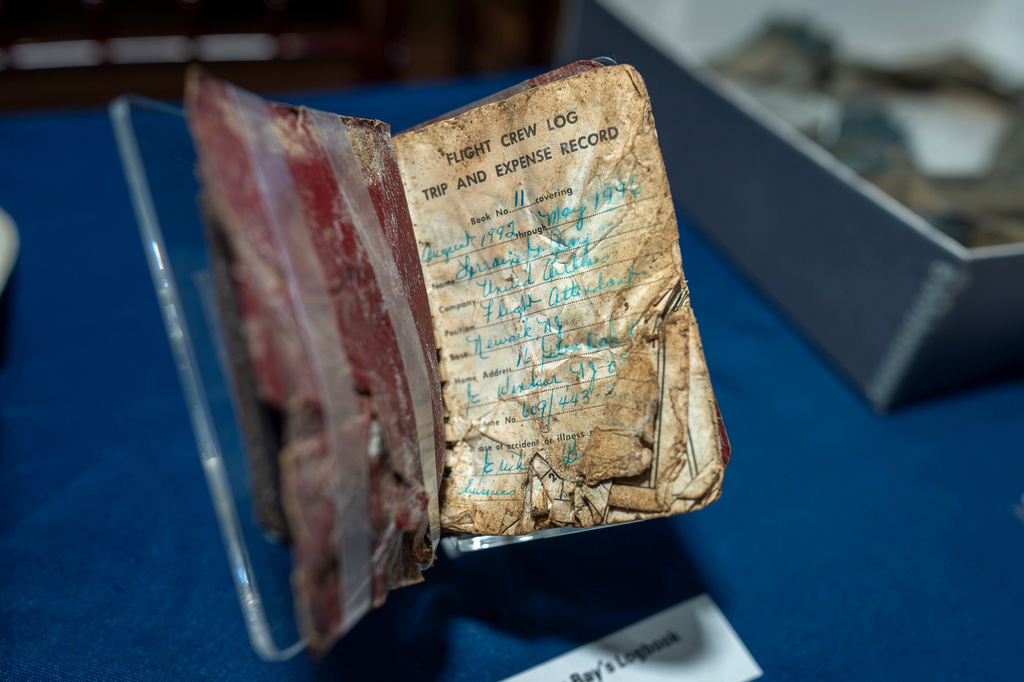 FLIGHT CREW LOG
TRIP AND EXPENSE RECORD
Book No. 11 covering
August 1992 through May 1996
Name Lorraine G. Bay
Company United Airlines
Position Flight Attendant
Base Newark NJ
Home Address 16
E. Windsor NJ 0
No. 609/443
of accident or illness
Erich B
business
Bay's Logbook